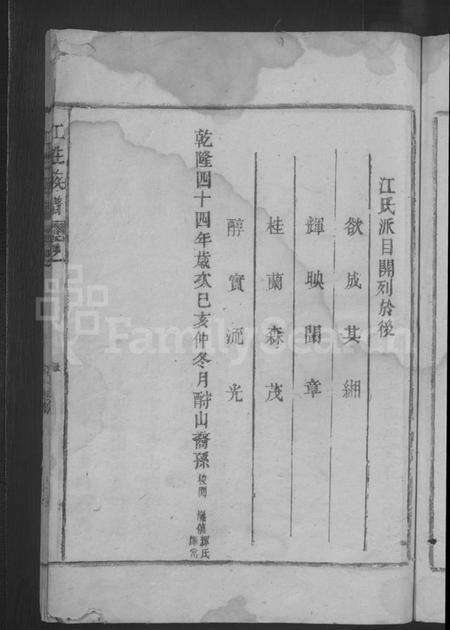 江氏派目開列於後
欲成其
輝映閣章
桂蘭森茂
醇實流光
乾隆四十四年歲次已亥仲冬月 山裔孫
江氏族譜
FamilySearch